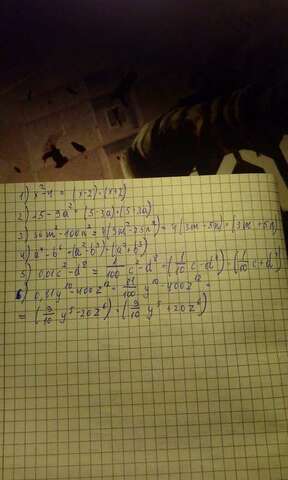 1) x²-4 = (x-2)·(x+2)
2) 25-9a² = (5-3a)·(5+3a)
3) 36m²-100n² = 4(9m²-25n²) = 4(3m-5n)·(3m+5n)
4) a⁴-b⁶ = (a²-b³)·(a²+b³)
5) 0,01c²-d⁸ = 1/100 c²-d⁸ = (1/10 c-d⁴)·(1/10 c+d⁴)
6) 0,81y¹⁰-400z¹² = 81/100 y¹⁰-400z¹² =
= (9/10 y⁵-20z⁶)·(9/10 y⁵+20z⁶)